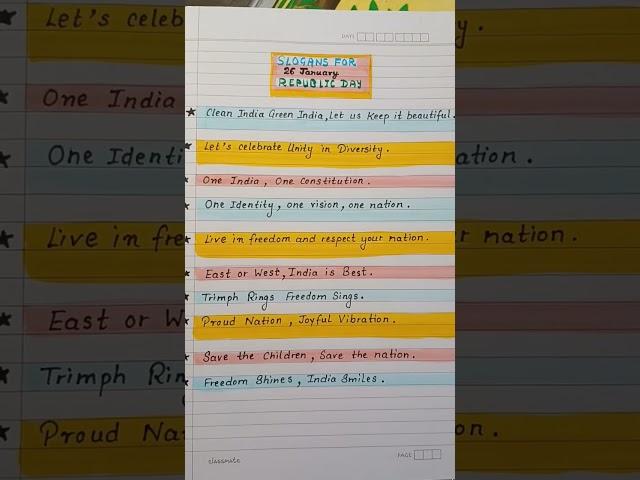 DATE
SLOGANS FOR
26 January
REPUBLIC DAY
★ Clean India Green India, Let us Keep it beautiful.
★ Let's celebrate Unity in Diversity.
★ One India, One Constitution.
★ One Identity, one vision, one nation.
★ Live in freedom and respect your nation.
★ East or West, India is Best.
★ Trimph Rings Freedom Sings.
★ Proud Nation, Joyful Vibration.
★ Save the Children, Save the nation.
★ Freedom Shines, India Smiles.
classmate
PAGE